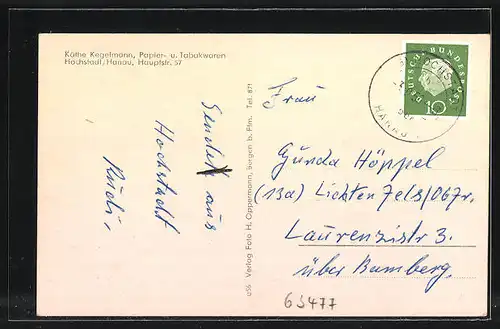 Käthe Kegelmann, Papier- u. Tabakwaren
Hochstadt/Hanau, Hauptstr. 57
DEUTSCHE BUNDESPOST
10
HANAU
Frau
Gunda Höppel
(13a) Lichtenfels/Obfr.
Laurenzistr 3.
über Bamberg.
aus
Hochstadt
Rudi.
a56 Verlag Foto H. Oppermann, Bergen b. Ffm. Tel. 871
65477